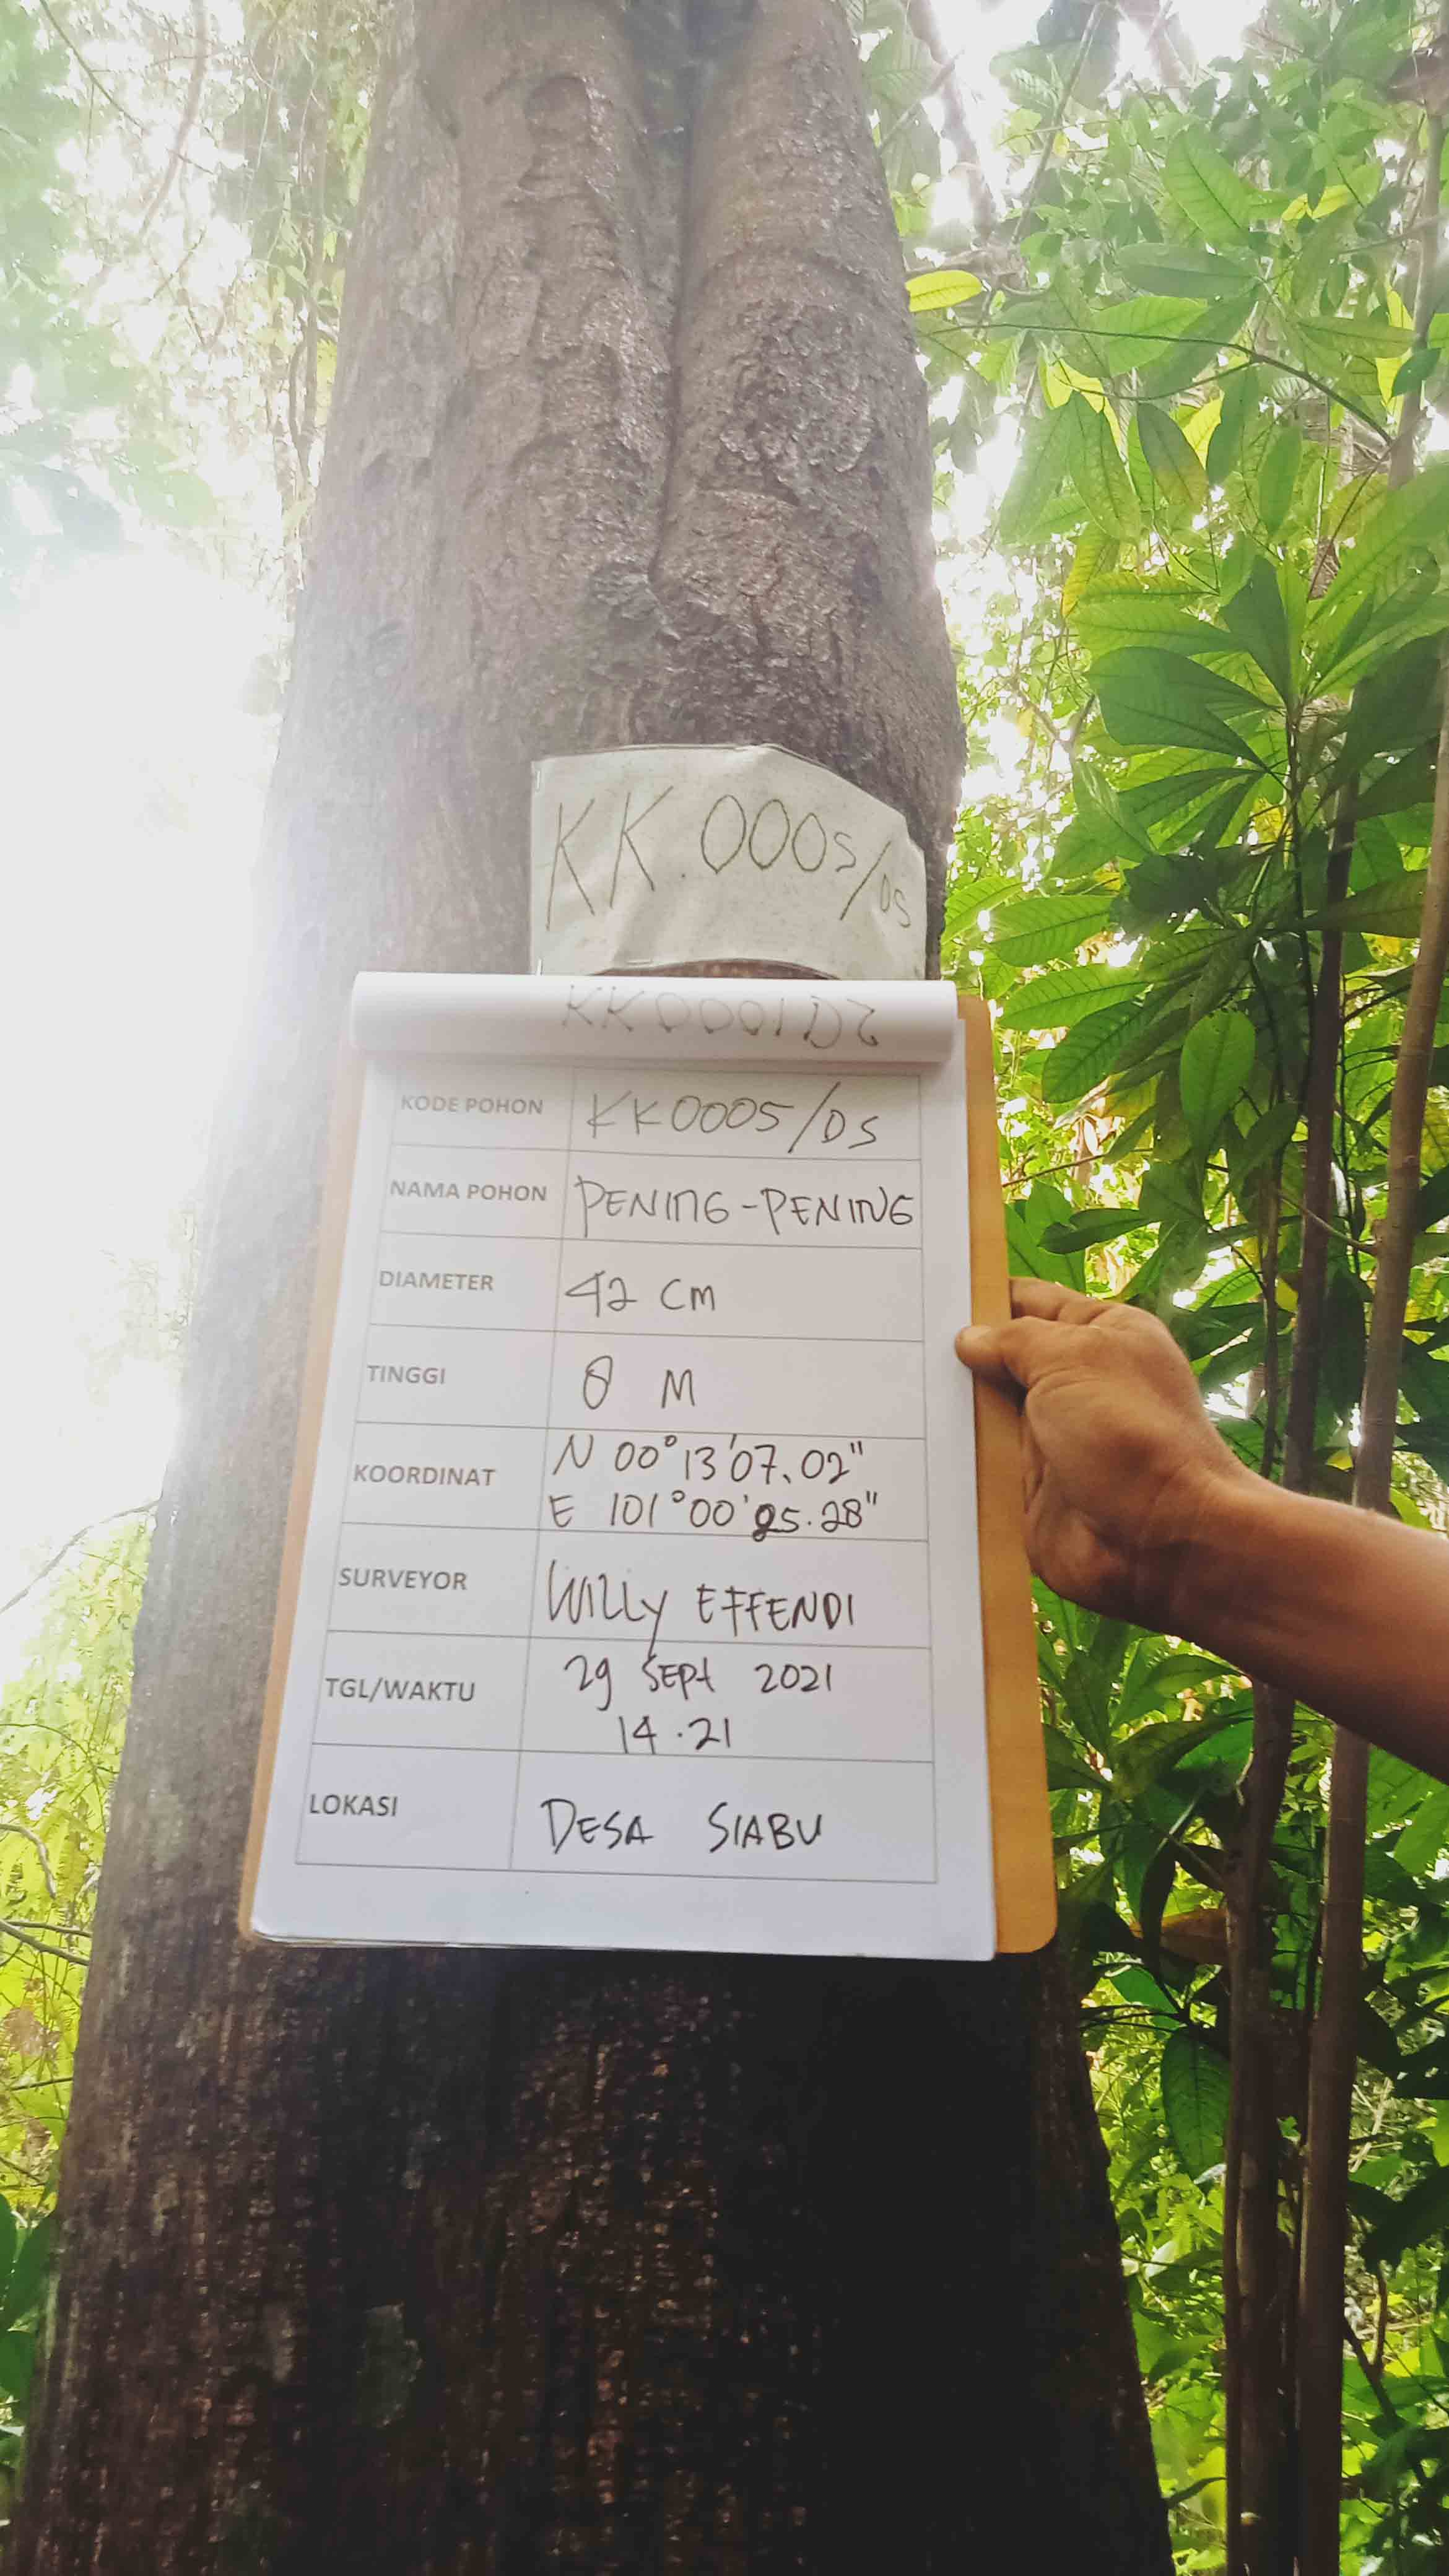 KK.0005/DS
KK0001DS
KODE POHON KK0005/DS
NAMA POHON PENING-PENING
DIAMETER 42 CM
TINGGI 8 M
KOORDINAT N 00°13'07.02"
E 101°00'25.28"
SURVEYOR WILLY EFFENDI
TGL/WAKTU 29 SEPT 2021
14.21
LOKASI DESA SIABU